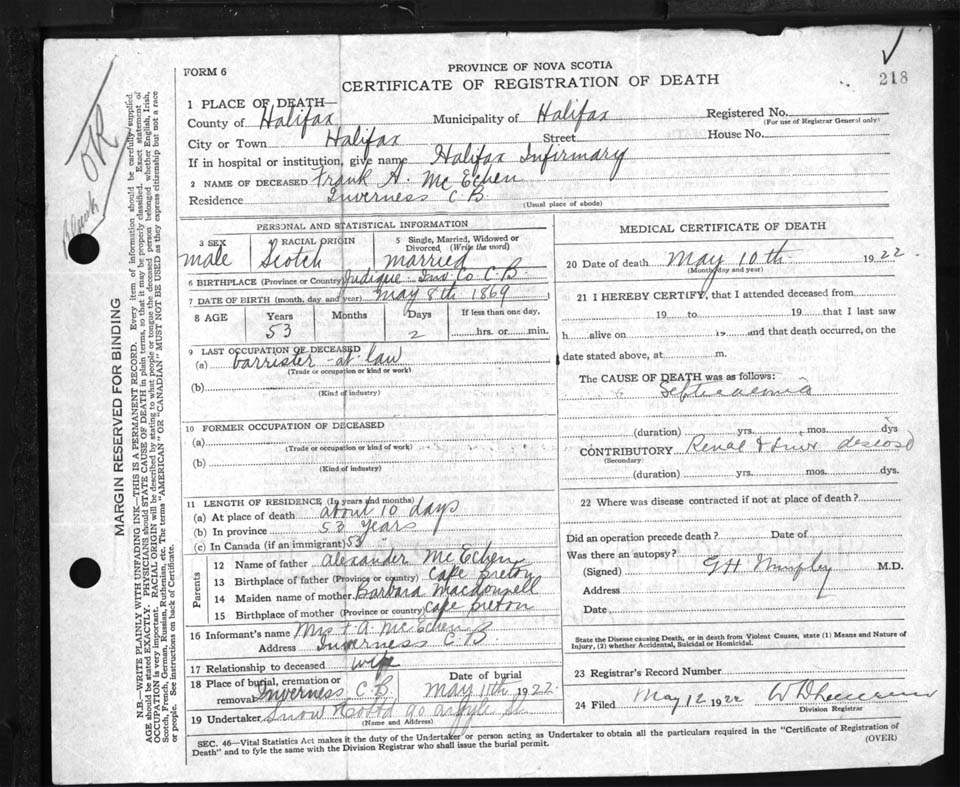 218
FORM 6
PROVINCE OF NOVA SCOTIA
CERTIFICATE OF REGISTRATION OF DEATH
OK
MARGIN RESERVED FOR BINDING
N.B.—WRITE PLAINLY WITH UNFADING INK—THIS IS A PERMANENT RECORD. Every item of information should be carefully supplied.
AGE should be stated EXACTLY. PHYSICIANS should STATE CAUSE OF DEATH in plain terms, so that it may be properly classified. Exact statement of
OCCUPATION is very important. RACIAL ORIGIN will be described by stating to what people or tongue the deceased person belonged whether English, Irish,
Scotch, French, German, Russian, Ruthenian, etc. The terms "AMERICAN" OR "CANADIAN" MUST NOT BE USED as they express citizenship but not a race
or people. See instructions on back of Certificate.
1 PLACE OF DEATH—
County of Halifax Municipality of Halifax Registered No.
(For use of Registrar General only)
City or Town Halifax Street House No.
If in hospital or institution, give name Halifax Infirmary
2 NAME OF DECEASED Frank A. McEchen
Residence Inverness C B
(Usual place of abode)
PERSONAL AND STATISTICAL INFORMATION
3 SEX RACIAL ORIGIN 5 Single, Married, Widowed or Divorced (Write the word)
male Scotch married
6 BIRTHPLACE (Province or Country) Judique Inv Co C.B.
7 DATE OF BIRTH (month, day and year) May 8th 1869
8 AGE Years Months Days If less than one day,
53 2 hrs. or min.
9 LAST OCCUPATION OF DECEASED
(a) barrister-at-law
(Trade or occupation or kind or work)
(b)
(Kind of industry)
10 FORMER OCCUPATION OF DECEASED
(a)
(Trade or occupation or kind of work)
(b)
(Kind of industry)
11 LENGTH OF RESIDENCE (In years and months)
(a) At place of death about 10 days
(b) In province 53 years
(c) In Canada (if an immigrant) 53 "
Parents
12 Name of father Alexander McEchen
13 Birthplace of father (Province or country) Cape Breton
14 Maiden name of mother Barbara Macdonnell
15 Birthplace of mother (Province or country) Cape Breton
16 Informant's name Mrs F. A. McEchen
Address Inverness C. B.
17 Relationship to deceased wife
18 Place of burial, cremation or removal Date of burial
Inverness C.B. May 11th 1922
19 Undertaker Snow & Co Ltd 90 Argyle St
(Name and Address)
MEDICAL CERTIFICATE OF DEATH
20 Date of death May 10th 1922
(Month, day and year)
21 I HEREBY CERTIFY, that I attended deceased from
19 to 19 that I last saw
h alive on 19 and that death occurred, on the
date stated above, at m.
The CAUSE OF DEATH was as follows:
Septicaemia
(duration) yrs. mos. dys
CONTRIBUTORY Renal & liver disease
(Secondary)
(duration) yrs. mos. dys.
22 Where was disease contracted if not at place of death?
Did an operation precede death? Date of
Was there an autopsy?
(Signed) G H Murphy M.D.
Address
Date
State the Disease causing Death, or in death from Violent Causes, state (1) Means and Nature of
Injury, (2) whether Accidental, Suicidal or Homicidal.
23 Registrar's Record Number
24 Filed May 12 1922
Division Registrar
SEC. 46—Vital Statistics Act makes it the duty of the Undertaker or person acting as Undertaker to obtain all the particulars required in the "Certificate of Registration of
Death" and to fyle the same with the Division Registrar who shall issue the burial permit.
(OVER)